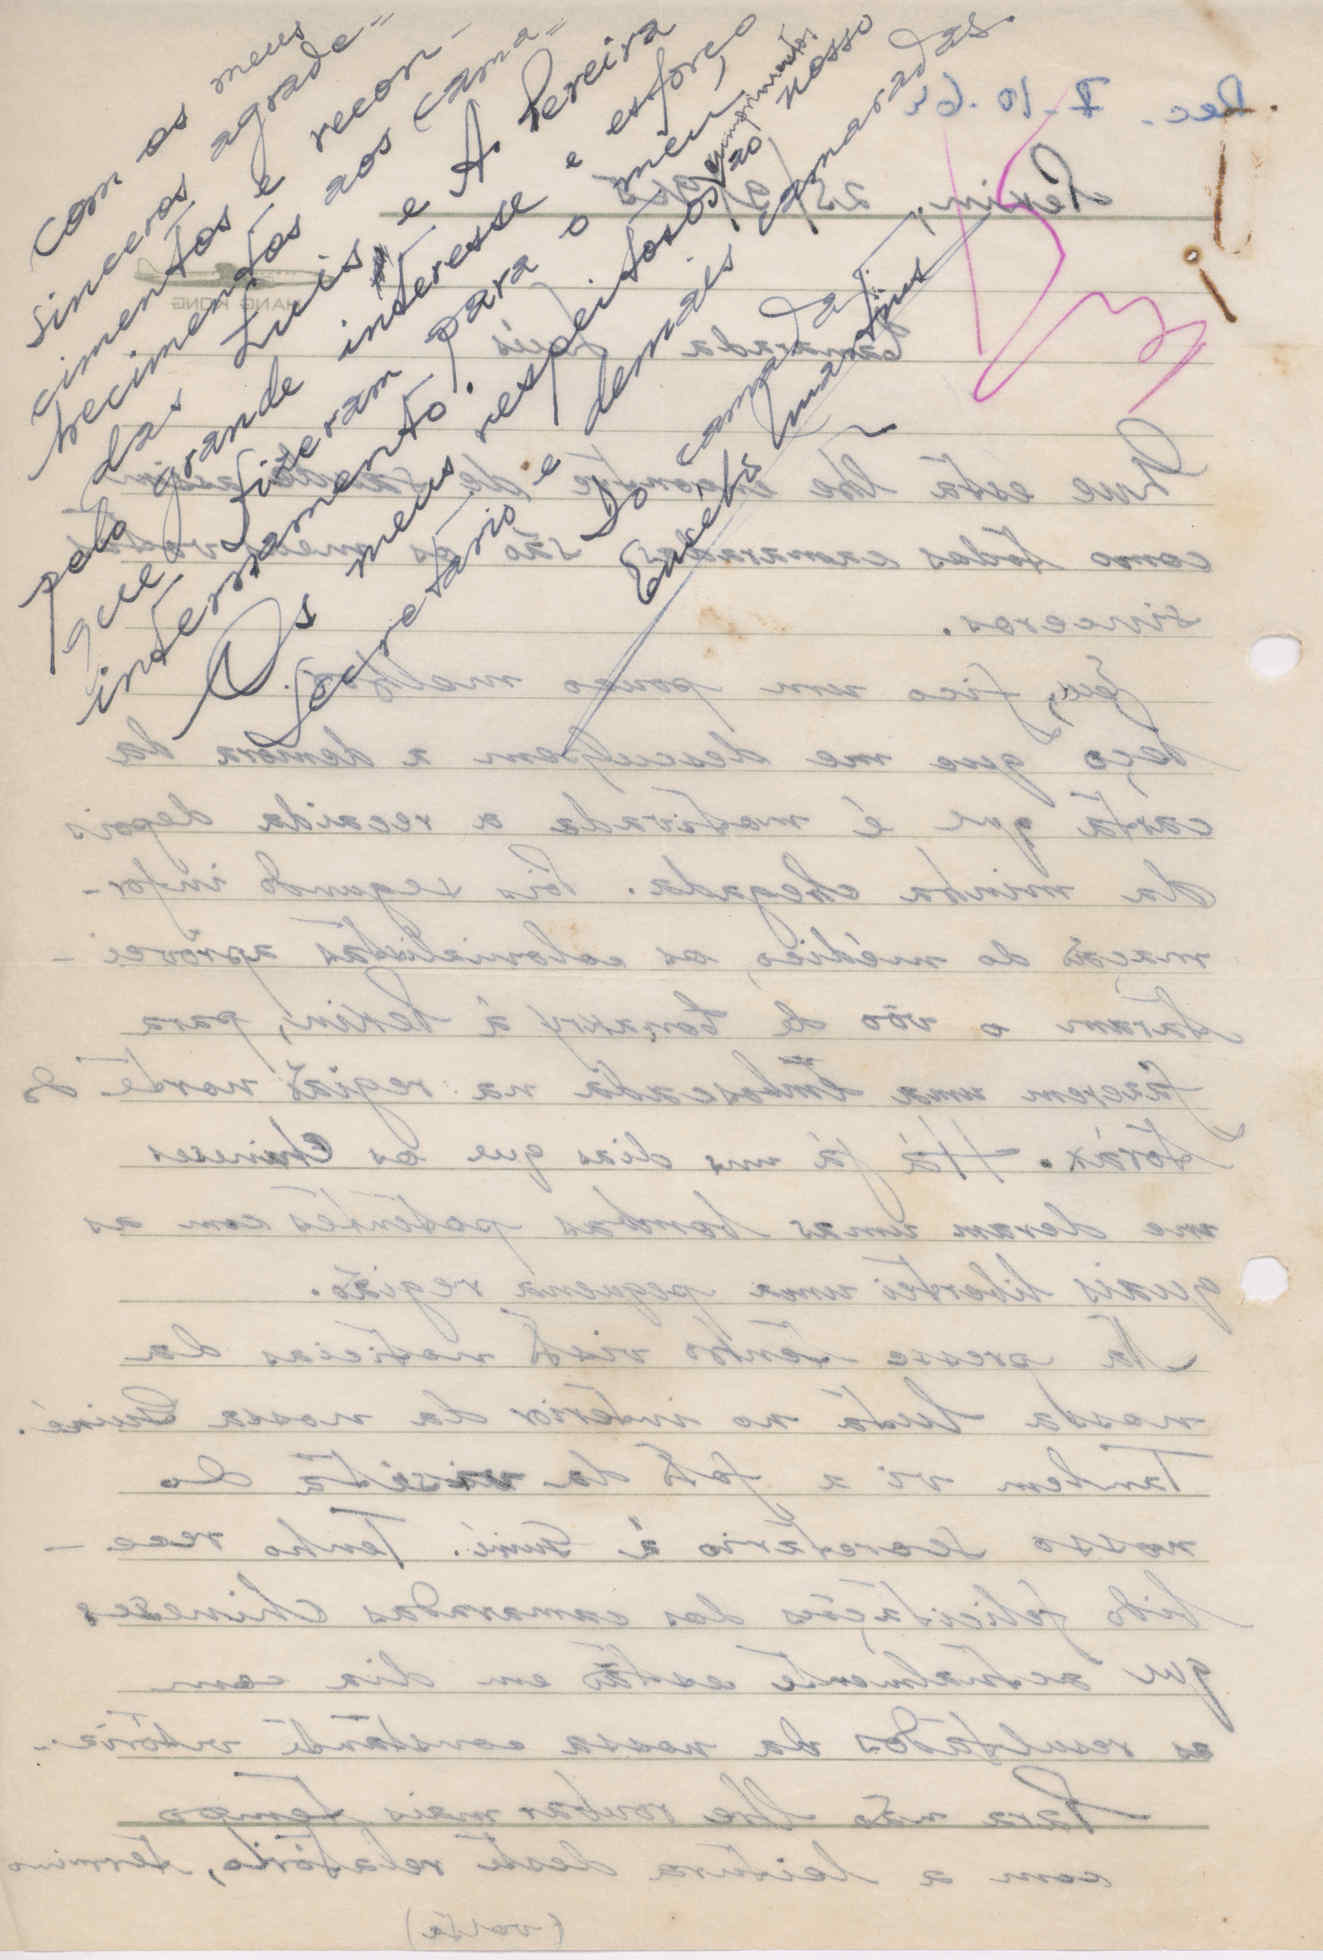 Com os meus
sinceros agrade=
cimentos e recon-
hecimentos aos cama=
das Luis e A. Pereira
pelo grande interesse e esforço
que fizeram para o meu
internamento.
Os meus respeitosos cumprimentos ao nosso
Secretário e demais camaradas.
Do camarada
Martins
Rec. 7.10.64
Pekin, 25/9/965
HANG KONG
Camarada Luís
Que esta lhe encontre de saude assim
como todos camaradas são os meus votos
sinceros.
Eu, fico um pouco melhor.
Peço que me desculpem a demora da
carta que é motivada a recaida depois
da minha chegada. Pois segundo infor-
mações do médico, os colonialistas aprovei-
taram o vôo de Conakry á Pekin, para
fazerem uma emboscada na região norte do
tórax. Há já uns dias que os Chineses
me deram umas bombas potentes com as
quais libertei uma pequena região.
Na presse tenho visto noticias da
nossa luta no interior da nossa Guiné.
Tambem vi a foto da visita do
nosso Secretário á Guiné. Tenho rece-
bido felicitações dos camaradas chineses
que actualmente estão em dia com
os resultados da nossa constante vitória.
Para não lhe roubar mais tempo
com a leitura deste relatório, termino
(volte)